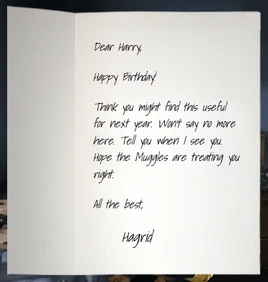 Dear Harry,
Happy Birthday!
Think you might find this useful
for next year. Won't say no more
here. Tell you when I see you.
Hope the Muggles are treating you
right.
All the best,
Hagrid